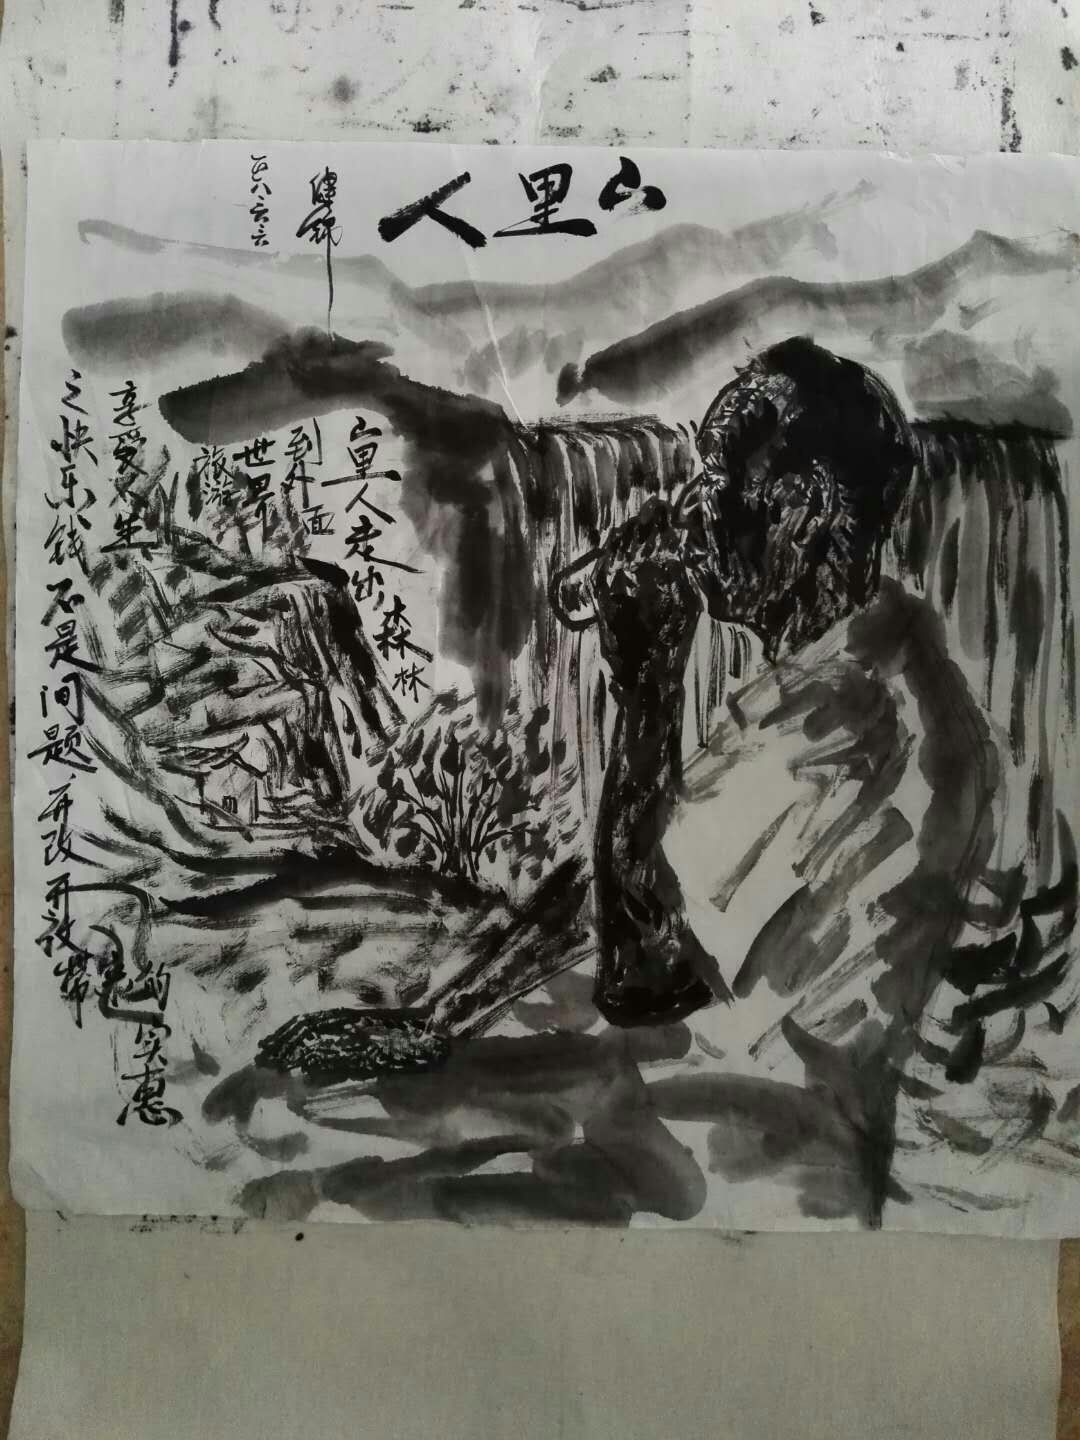 山里人
山里人走出森林
到外面
世界
旅游
享受人生
之快乐钱不是问题,并改开放带来的实惠